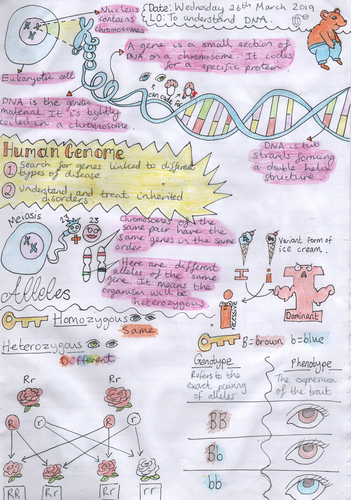 Nucleus contains chromosomes
Date: Wednesday 26th March 2019
LO: To understand DNA.
A gene is a small section of
DNA on a chromosome. It codes
for a specific protein
Eukaryotic cell
can code for
DNA is the genetic
material. It is tightly
coiled in a chromosome.
DNA is two
strands forming
a double helix
structure
Human Genome
1 Search for genes linked to different
types of disease
2 Understand and treat inherited
disorders
Meiosis
23
23
Chromosomes of the
same pair have the
same genes in the same
order
Variant form of
ice cream.
I
i
Here are different
alleles of the same
gene. It means the
organism will be
heterozygous
Alleles
i
recessive
I
Dominant
Homozygous
Same
Heterozygous
Different
B=brown b=blue
Genotype
Refers to the
exact pairing
of alleles
Phenotype
The expression
of the trait
Rr
Rr
R
r
R
r
BB
Bb
bb
RR
Rr
Rr
rr